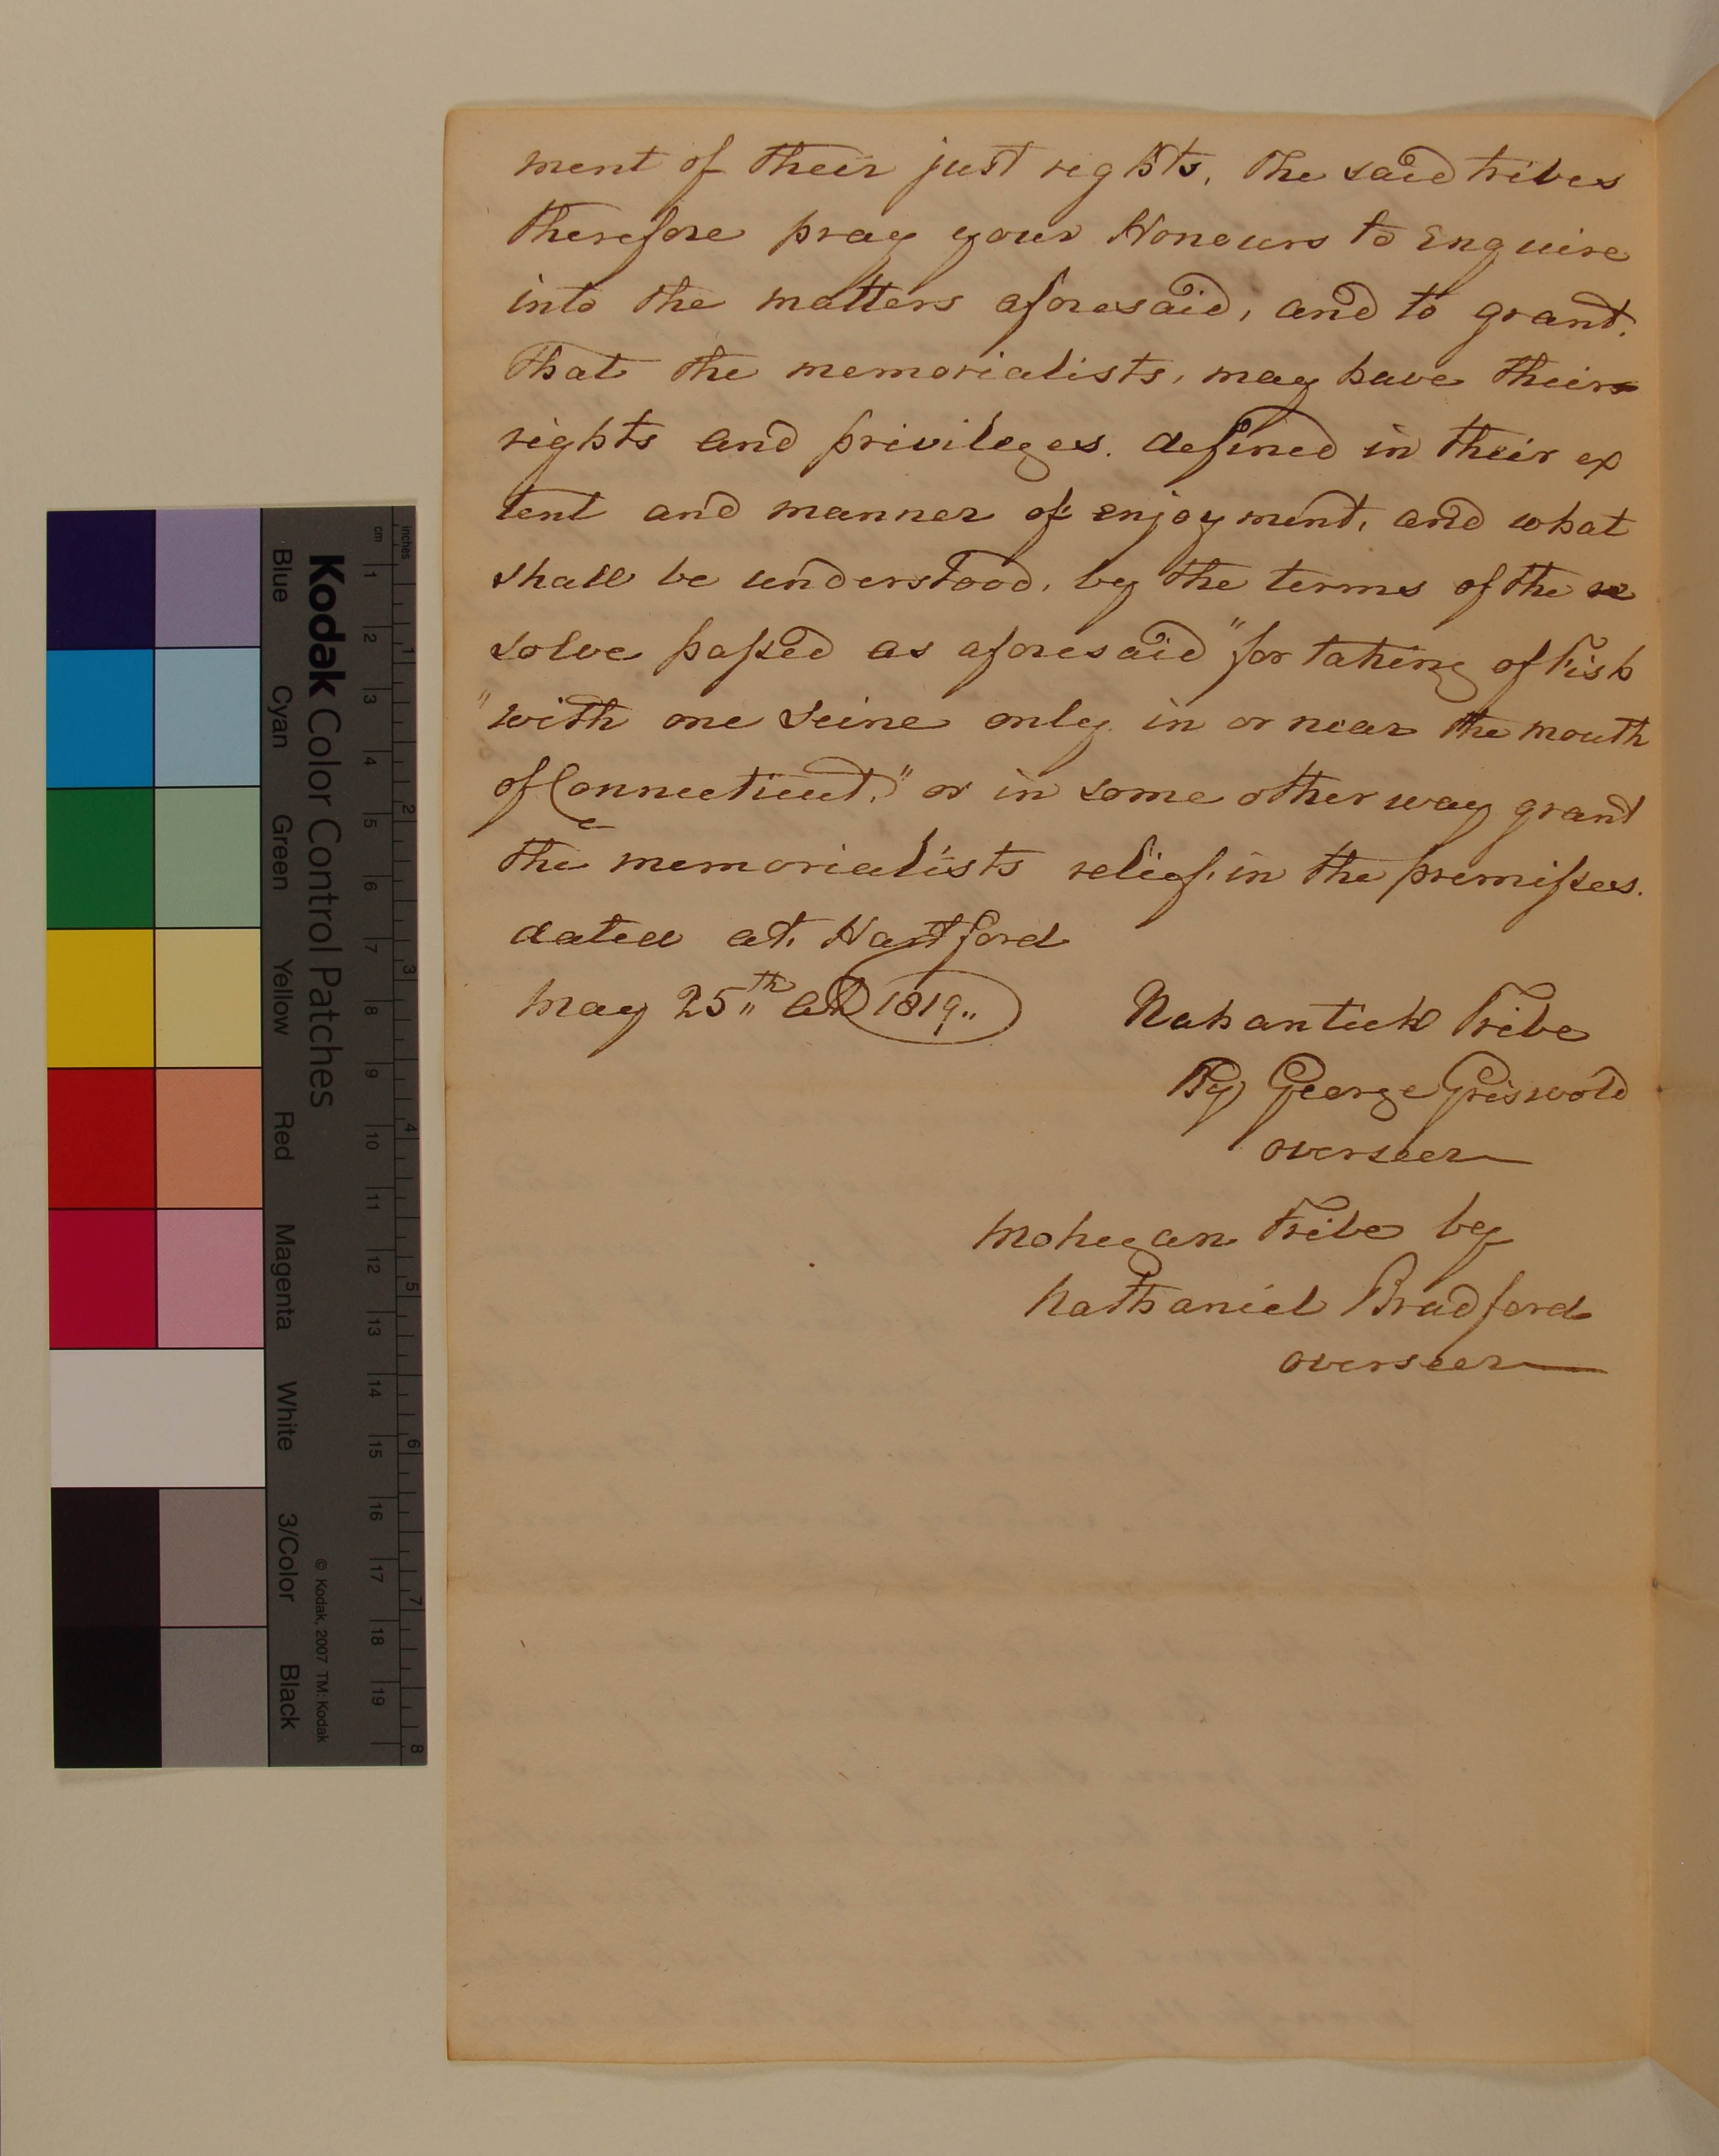 ment of their just rights, The said tribes
therefore pray your Honours to Enquire
into the matters aforesaid, and to grant.
That the memorialists, may have their
rights and privileges. defined in their ex
tent and manner of enjoyment, and what
shall be understood, by the terms of the re
solve passed as aforesaid "for taking of Fish
"with one seine only in or near the mouth
of Connecticut," or in some other way grant
the memorialists relief, in the premisses.
dated at, Hartford
May 25th AD 1819..
Nahantick Tribe
By George Griswold
overseer
Mohegan Tribe by
Nathaniel Bradford
overseer
Kodak Color Control Patches
© Kodak, 2007 TM: Kodak
Blue Cyan Green Yellow Red Magenta White 3/Color Black
cm 1 2 3 4 5 6 7 8 9 10 11 12 13 14 15 16 17 18 19
inches 1 2 3 4 5 6 7 8